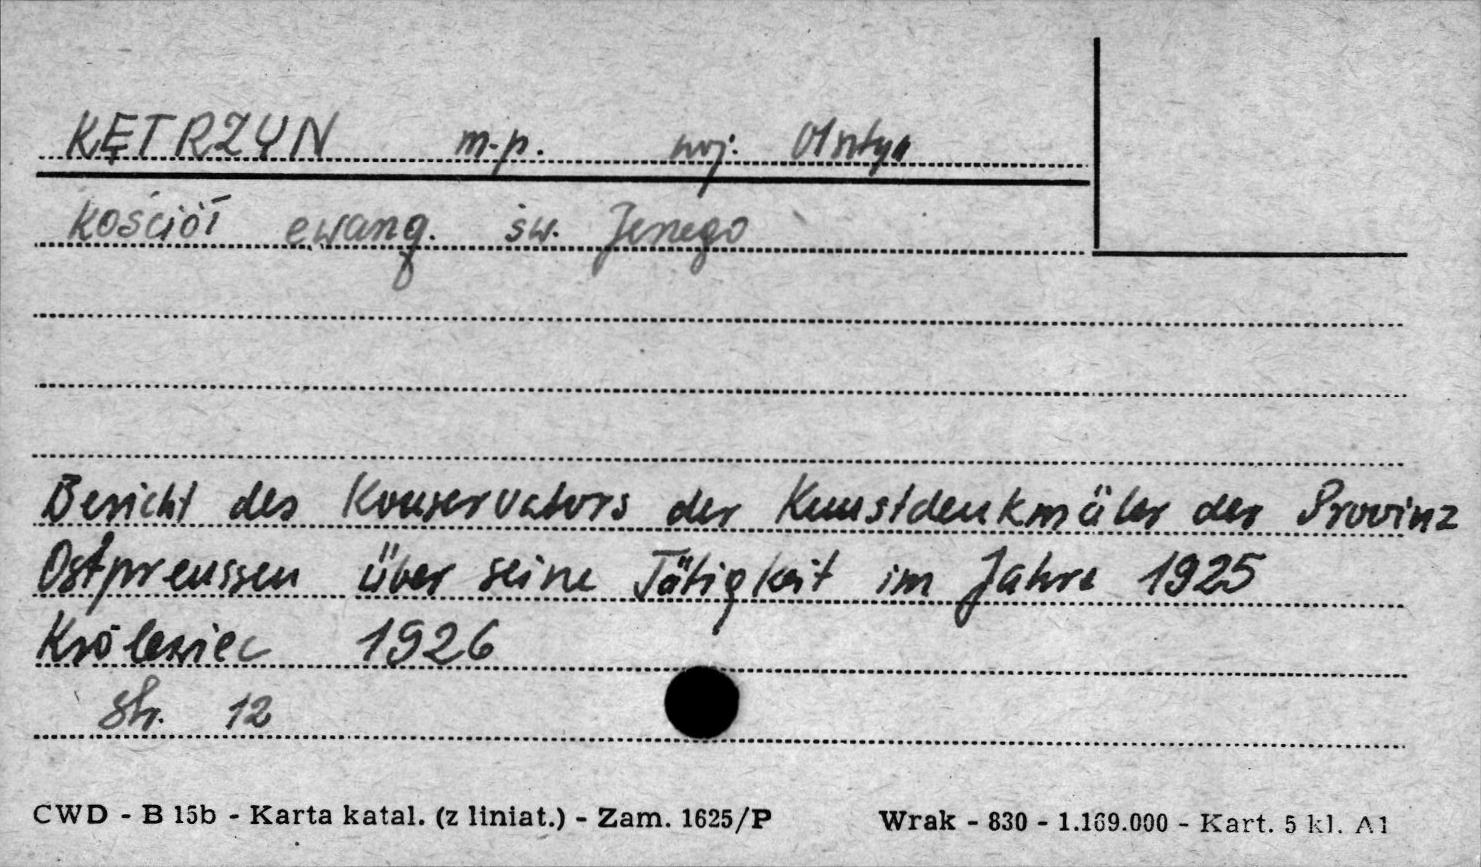 KĘTRZYN m.p. woj. Olsztyn
kościół ewang. św. Jerzego
Bericht des Konservators der Kunstdenkmäler der Provinz
Ostpreussen über seine Tätigkeit im Jahre 1925
Królewiec 1926
str. 12
CWD - B 15b - Karta katal. (z liniat.) - Zam. 1625/P Wrak - 830 - 1.169.000 - Kart. 5 kl. A1